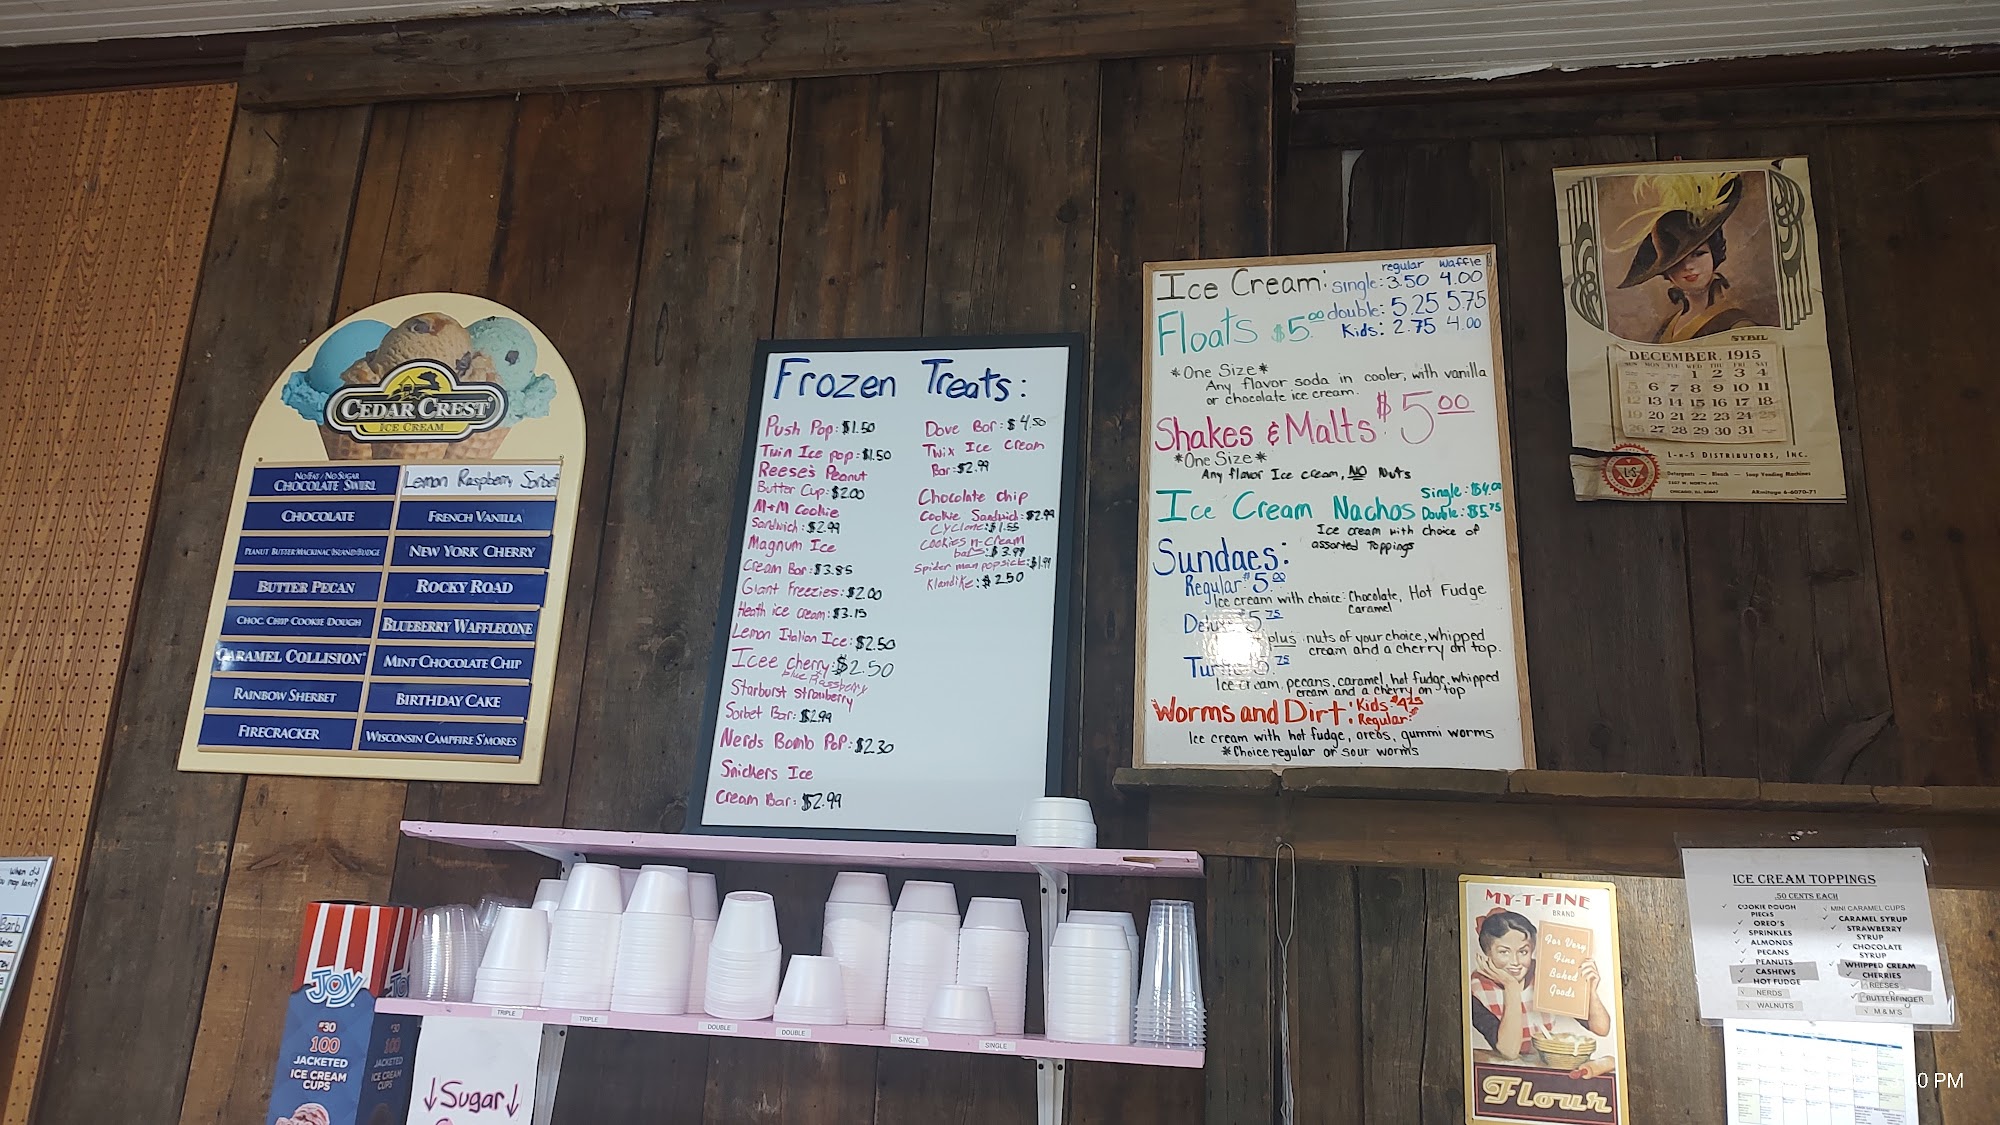 CEDAR CREST
ICE CREAM
NO FAT / NO SUGAR
CHOCOLATE SWIRL
Lemon Raspberry Sorbet
CHOCOLATE
FRENCH VANILLA
PEANUT BUTTER MACKINAC ISLAND FUDGE
NEW YORK CHERRY
BUTTER PECAN
ROCKY ROAD
CHOC. CHIP COOKIE DOUGH
BLUEBERRY WAFFLECONE
CARAMEL COLLISION
MINT CHOCOLATE CHIP
RAINBOW SHERBET
BIRTHDAY CAKE
FIRECRACKER
WISCONSIN CAMPFIRE S'MORES
Frozen Treats:
Push Pop: $1.50
Twin Ice pop: $1.50
Reese's Peanut
Butter Cup: $2.00
M+M Cookie
Sandwich: $2.99
Magnum Ice
Cream Bar: $3.85
Giant Freezies: $2.00
Heath ice cream: $3.15
Lemon Italian Ice: $2.50
Icee cherry: $2.50
blue Rassberry
Starburst strawberry
Sorbet Bar: $2.99
Nerds Bomb Pop: $2.30
Snickers Ice
Cream Bar: $2.99
Dove Bar: $4.50
Twix Ice Cream
Bar: $2.99
Chocolate chip
Cookie Sandwich: $2.99
Cyclone: $1.55
Cookies-n-Cream
bars: $3.99
Spider man popsicle: $1.99
Klandike: $2.50
regular waffle
Ice Cream: single: 3.50 4.00
double: 5.25 5.75
Floats $5.00
Kids: 2.75 4.00
*One Size*
Any flavor soda in cooler, with vanilla
or chocolate ice cream.
Shakes & Malts $5.00
*One Size*
Any flavor Ice cream, NO Nuts
Ice Cream Nachos Single: $4.00
Double: $5.75
Ice cream with choice of
assorted Toppings
Sundaes:
Regular: $5.00
Ice cream with choice: Chocolate, Hot Fudge
Caramel
plus nuts of your choice, whipped
cream and a cherry on top.
Ice cream, pecans, caramel, hot fudge, whipped
cream and a cherry on top
Worms and Dirt: Kids $4.25
Regular:
Ice cream with hot fudge, oreos, gummi worms
*Choice regular or sour worms
SYBIL
DECEMBER, 1915
SUN. MON. TUE. WED. THU. FRI. SAT.
1 2 3 4
5 6 7 8 9 10 11
12 13 14 15 16 17 18
19 20 21 22 23 24 25
26 27 28 29 30 31
L-N-S DISTRIBUTORS, INC.
Detergents — Bleach — Soap Vending Machines
CHICAGO, ILL. 60647
ARmitage 6-6070-71
TRIPLE
TRIPLE
DOUBLE
DOUBLE
SINGLE
SINGLE
JOY
#30
100
JACKETED
ICE CREAM
CUPS
↓Sugar↓
When did
you may last?
Barb
MY-T-FINE
BRAND
For Very
Fine
Baked
Goods
Flour
ICE CREAM TOPPINGS
.50 CENTS EACH
COOKIE DOUGH
PIECES
OREO'S
SPRINKLES
ALMONDS
PECANS
PEANUTS
CASHEWS
HOT FUDGE
NERDS
WALNUTS
MINI CARAMEL CUPS
CARAMEL SYRUP
STRAWBERRY
SYRUP
CHOCOLATE
SYRUP
WHIPPED CREAM
CHERRIES
REESES
BUTTERFINGER
M&M'S
0 PM